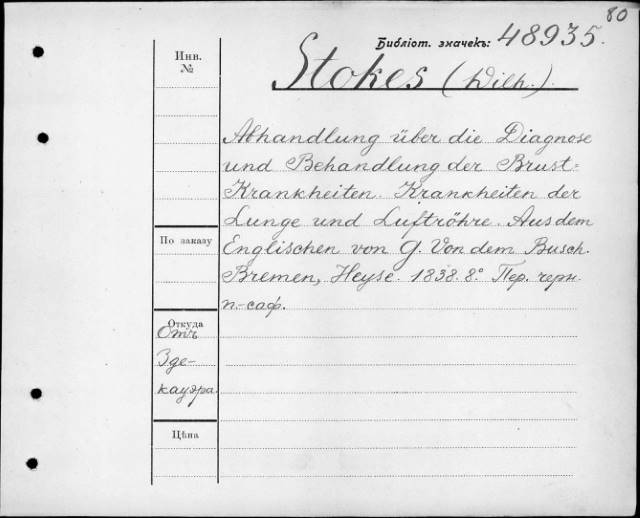 80
Библіот. значекъ: 48935.
Инв.
№
Stokes (Wilh.).
Abhandlung über die Diagnose
und Behandlung der Brust=
Krankheiten. Krankheiten der
Lunge und Luftröhre. Aus dem
Englischen von G. Von dem Busch.
Bremen, Heyse. 1838. 8° Пер. черн.
п.-саф.
По заказу
Откуда
Отъ
Зде-
кауэра.
Цѣна